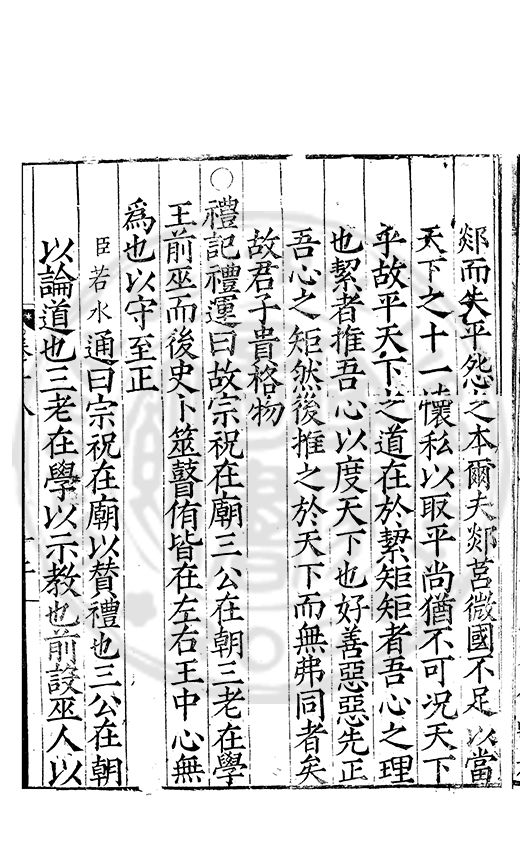 郯而失平怨之本爾夫郯莒微國不足以當
天下之十一懷私以取平尚猶不可况天下
乎故平天下之道在於絜矩矩者吾心之理
也絜者推吾心以度天下也好善惡惡先正
吾心之矩然後推之於天下而無弗同者矣
故君子貴格物
○禮記禮運曰故宗祝在廟三公在朝三老在學
王前巫而後史卜筮瞽侑皆在左右王中心無
爲也以守至正
臣若水通曰宗祝在廟以贊禮也三公在朝
以論道也三老在學以示教也前設巫人以